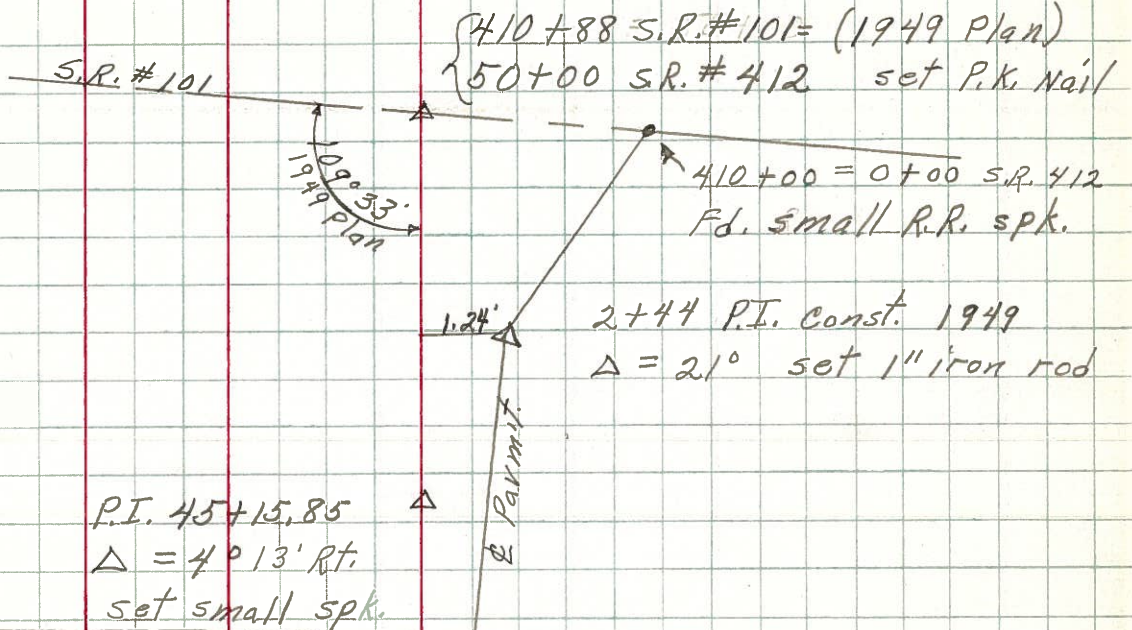 410+88 S.R.#101= (1949 Plan)
50+00 S.R.#412 set P.K. Nail
S.R.#101
109°33'
1949 Plan
410+00 = 0+00 S.R. 412
Fd. small R.R. spk.
1.24'
2+44 P.I. Const. 1949
Δ = 21° set 1" iron rod
℄ Pavm't.
P.I. 45+15.85
Δ = 4°13' Rt.
set small spk.